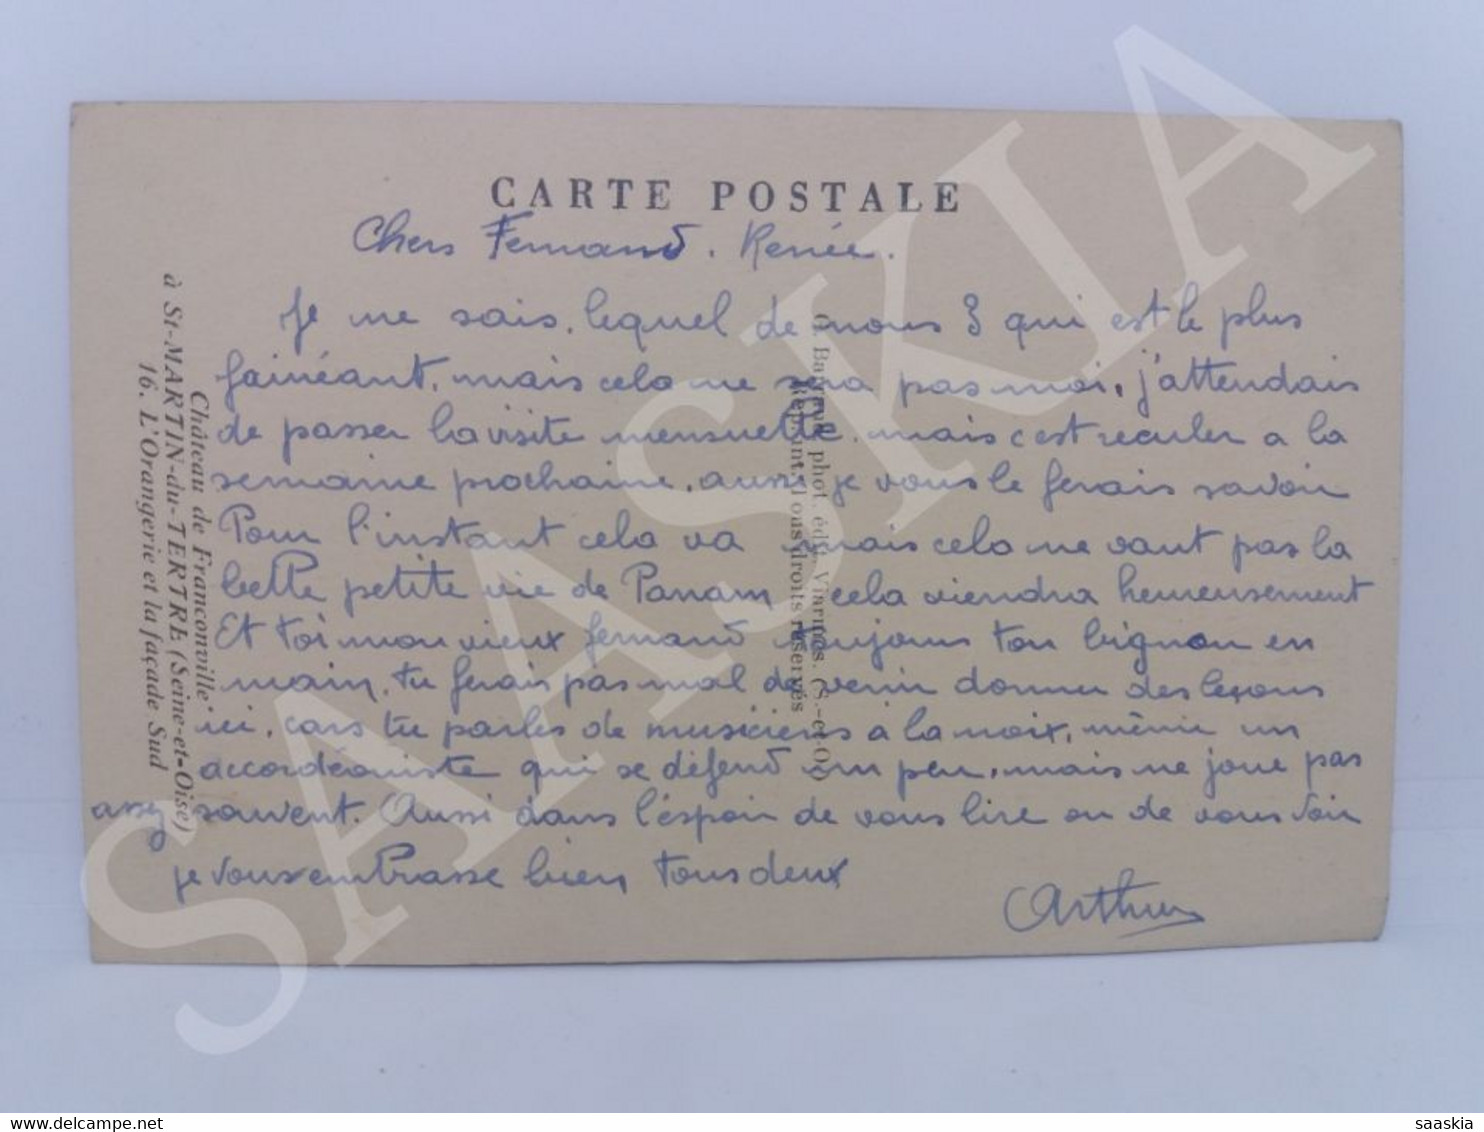 CARTE POSTALE
Chers Fernand. Renée.
Je ne sais. lequel de nous 3 qui est le plus
fainéant, mais cela ne sera pas moi, j'attendais
de passer la visite mensuelle, mais c'est reculer a la
semaine prochaine. aussi je vous le ferais savoir
Pour l'instant cela va mais cela ne vaut pas la
belle petite vie de Panam cela viendra heureusement
Et toi mon vieux fernand toujours ton bignou en
main, tu ferais pas mal de venir donner des leçons
ici, cars tu parles de musiciens à la noix, même un
accordéoniste qui se défend un peu, mais ne joue pas
assez souvent. Aussi dans l'éspoir de vous lire ou de vous voir
je vous embrasse bien tous deux
Arthur
Château de Franconville
à St-MARTIN-du-TERTRE (Seine-et-Oise)
16. L'Orangerie et la façade Sud
phot. édit. Viarmes. (S.-et-O.)
Reprint. Tous droits réservés
SAASKIA
saaskia
www.delcampe.net